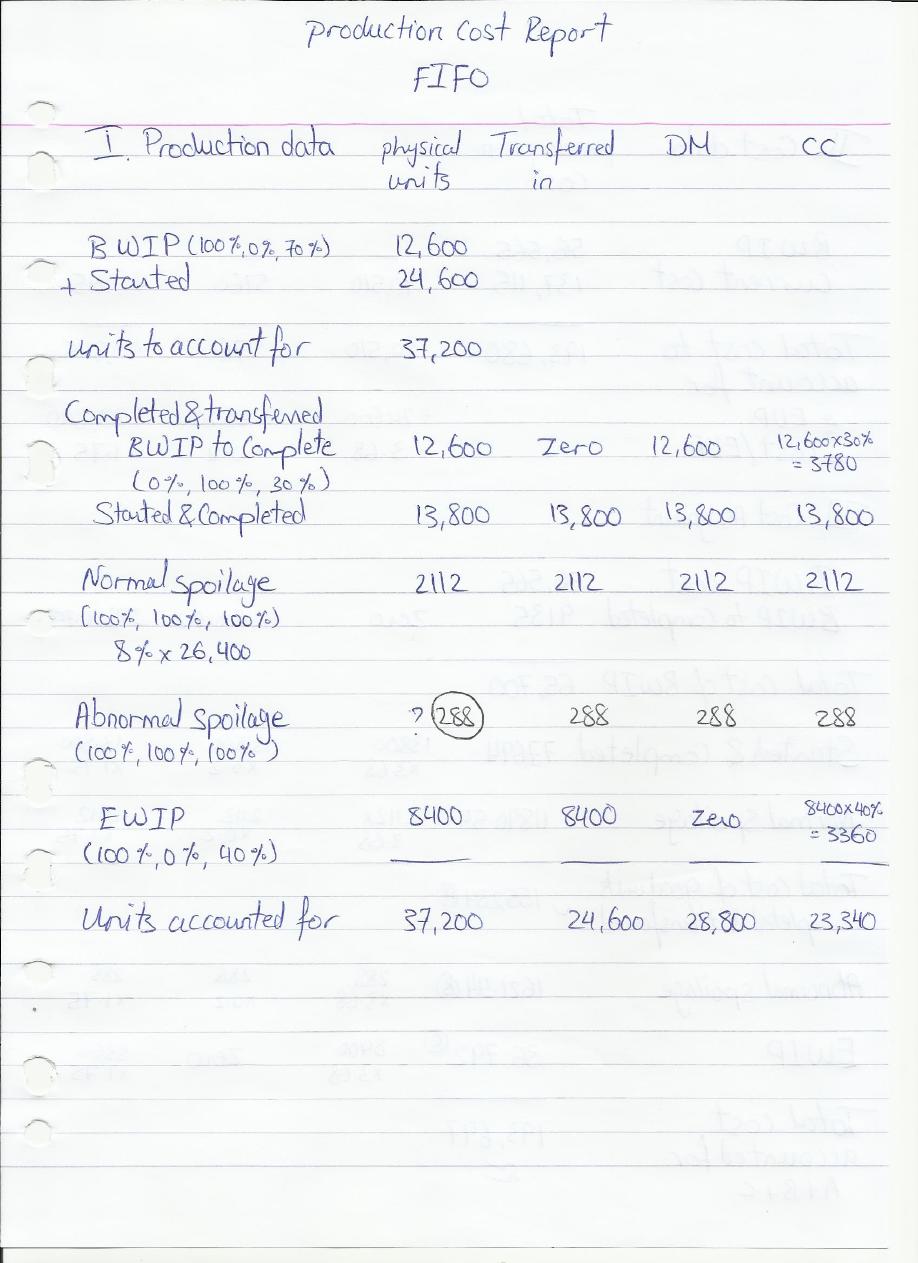 Production Cost Report
FIFO
I. Production data physical units Transferred in DM CC
BWIP (100%, 0%, 70%) 12,600
+ Started 24,600
Units to account for 37,200
Completed & transferred
BWIP to Complete 12,600 Zero 12,600 12,600x30%
(0%, 100%, 30%) = 3780
Started & Completed 13,800 13,800 13,800 13,800
Normal spoilage 2112 2112 2112 2112
(100%, 100%, 100%)
8% x 26,400
Abnormal spoilage ? 288 288 288 288
(100%, 100%, 100%)
EWIP 8400 8400 Zero 8400x40%
(100%, 0%, 40%) = 3360
Units accounted for 37,200 24,600 28,800 23,340